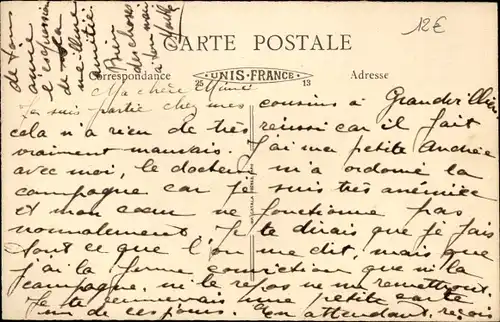 12€
CARTE POSTALE
Correspondance
UNIS-FRANCE
25
13
Adresse
Ma chère Mimi
Je suis partie chez mes cousins à Grandvilliers
cela n'a rien de très réussi car il fait
vraiment mauvais. J'ai ma petite Andrée
avec moi, le docteur m'a ordonné la
campagne car je suis très anémiée
et mon cœur ne fonctionne pas
normalement. Je te dirais que je fais
tout ce que l'on me dit, mais que
j'ai la ferme conviction que ni la
campagne, ni le repos ne me remettront.
Je te enverrais une petite carte
un de ces jours. En attendant, reçois
de ton
amie
l'expression
de sa
meilleure
amitié.
Bien
des choses
à ton mari